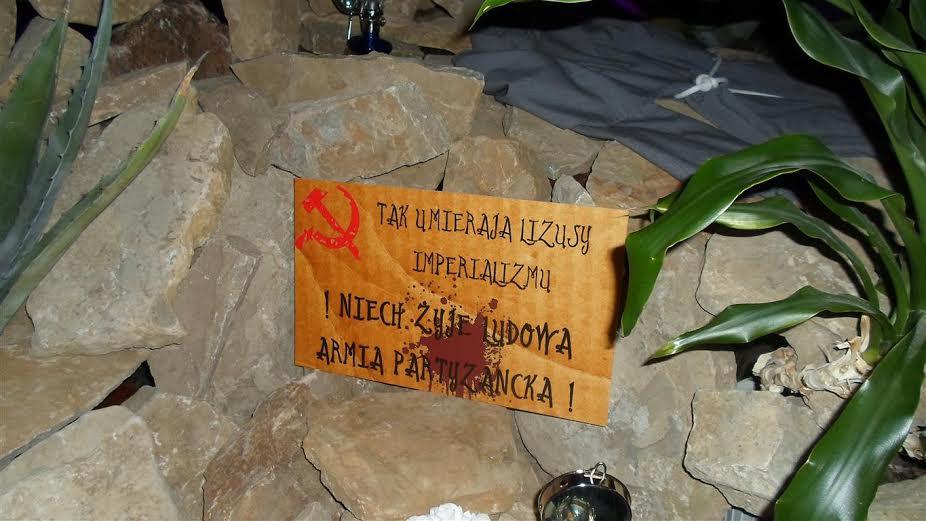 TAK UMIERAJA LIZUSY
IMPERIALIZMU
! NIECH ŻYJE LUDOWA
ARMIA PARTYZANCKA !